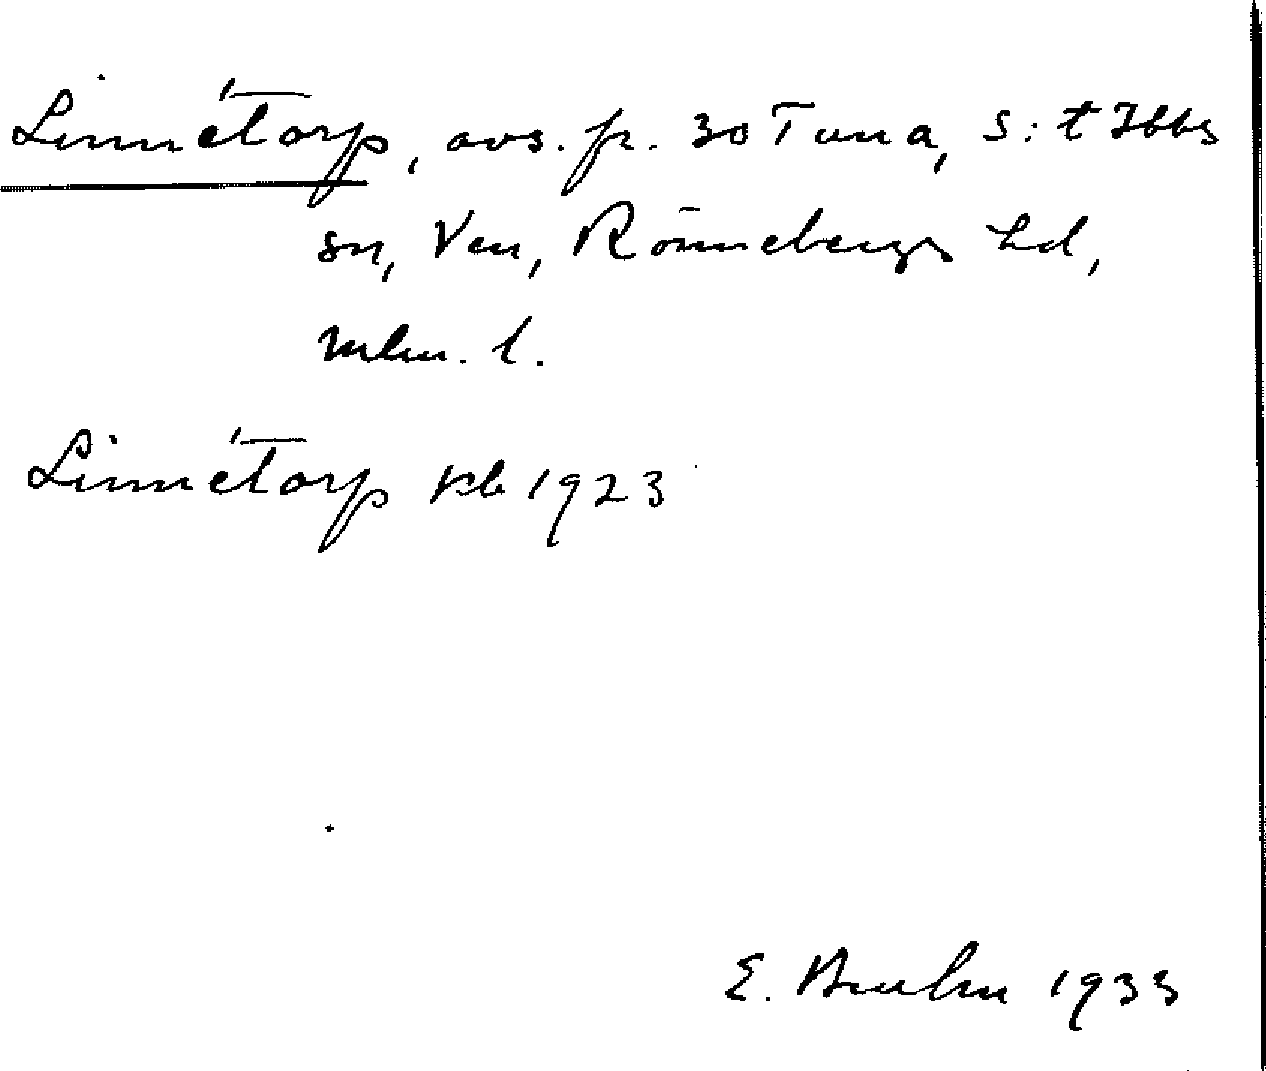 Linnétorp, avs. fr. 30 Tuna, S:t Ibbs
sn, Ven, Rönnebergs hd,
Mlm. l.
Linnétorp kb 1923
E. Bruhn 1933